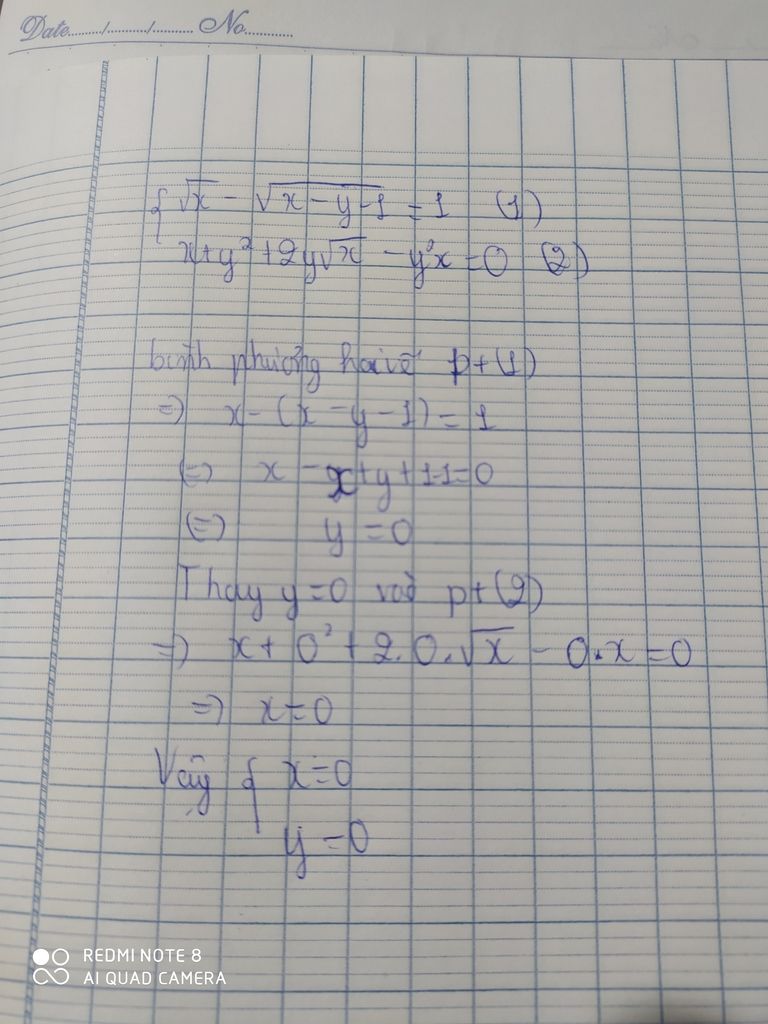 Date......../......../........ No............
{ √x - √(x - y - 1) = 1 (1)
x + y² + 2y√x - y²x = 0 (2)
bình phương hai vế pt (1)
=> x - (x - y - 1) = 1
(=) x - x + y + 1 - 1 = 0
(=) y = 0
Thay y = 0 vào pt (2)
=> x + 0² + 2.0.√x - 0.x = 0
=> x = 0
Vậy { x = 0
y = 0
REDMI NOTE 8
AI QUAD CAMERA